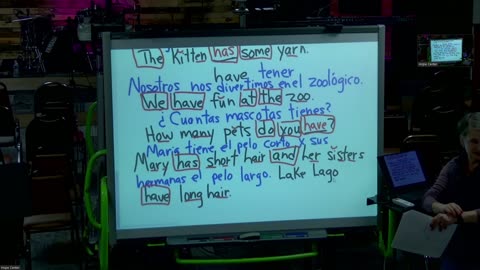 The Kitten has some yarn.
have tener
Nosotros nos divertimos en el zoológico.
We have fun at the zoo.
¿Cuantas mascotas tienes?
How many pets do you have?
Maria tiene el pelo corto y sus
Mary has short hair and her sisters
hermanas el pelo largo. Lake Lago
have long hair.
Hope Center
Hope Center